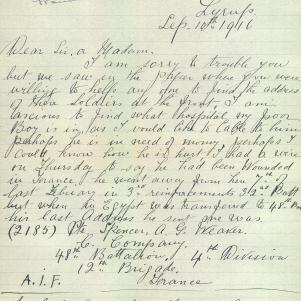 Lyrup
Sep. 10th 1916
Dear Sir or Madam.
I am sorry to trouble you
but we saw in the paper where you were
willing to help any one to find the address
of those Soldiers at the front, I am
ancious to find what hospital my poor
Boy is in, as I would like to Cable to him
perhaps he is in need of money, perhaps I
could know how he is hurt, I had a wire
on Thursday to say he had been Wounded
in France he went away from here 7th of
last February in 3rd reinforcements 32nd Batt
but when in Egypt was transferred to 48th Batt
his last Address he sent me was.
(2185) Pte Spencer, A. G. Weaver.
C. Company.
48th Battalion, 4th Division
12th Brigade,
A.I.F. France